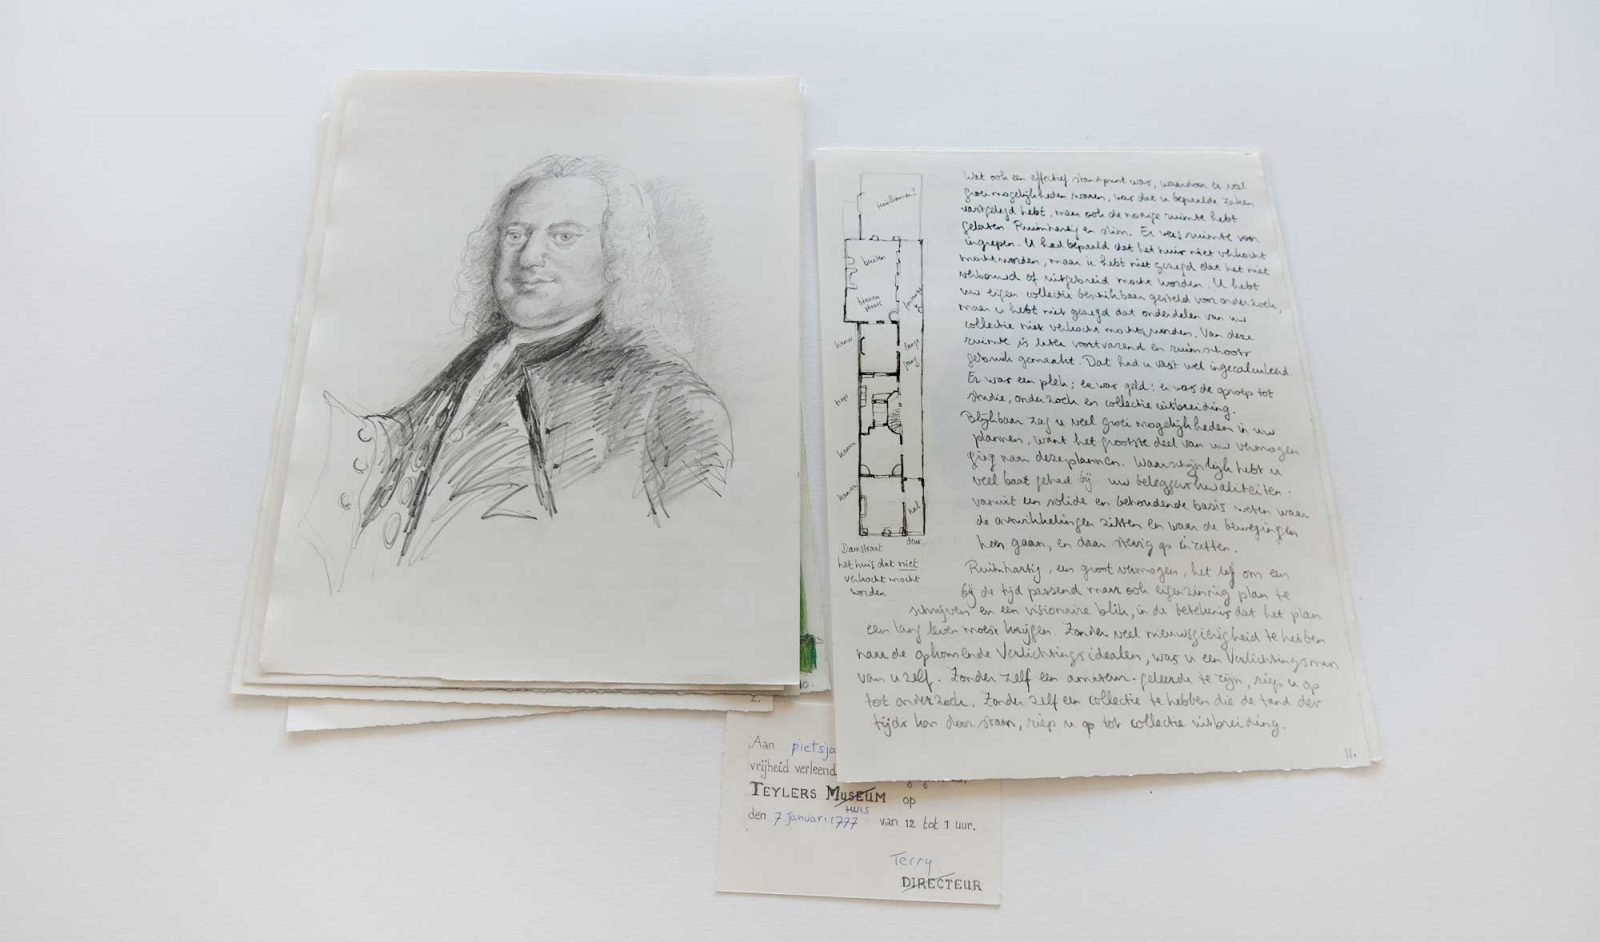 Wat ook een effectief standpunt was, waardoor er veel
groei mogelijkheden waren, was dat u bepaalde zaken
vastgelegd hebt, maar ook de nodige ruimte hebt
gelaten. Ruimhartig en slim. Er was ruimte voor
ingrepen. U had bepaald dat het huis niet verkocht
mocht worden, maar u hebt niet gezegd dat het niet
verbouwd of uitgebreid mocht worden. U hebt
uw eigen collectie beschikbaar gesteld voor onderzoek,
maar u hebt niet gezegd dat onderdelen van uw
collectie niet verkocht mochten worden. Van deze
ruimte is later voortvarend en ruimschoots
gebruik gemaakt. Dat had u vast wel ingecalculeerd.
Er was een plek; er was geld; er was de oproep tot
studie, onderzoek en collectie uitbreiding.
Blijkbaar zag u veel groei mogelijkheden in uw
plannen, want het grootste deel van uw vermogen
ging naar deze plannen. Waarschijnlijk hebt u
veel baat gehad bij uw beleggerskwaliteiten:
vanuit een solide en behoudende basis weten waar
de ontwikkelingen zitten en waar de bewegingen
heen gaan, en daar stevig op inzetten.
Ruimhartig, een groot vermogen, het lef om een
bij de tijd passend maar ook eigenzinnig plan te
schrijven en een visionaire blik, in de betekenis dat het plan
een lang leven moest krijgen. Zonder veel nieuwsgierigheid te hebben
naar de opkomende Verlichtingsidealen, was u een Verlichtingsman
van u zelf. Zonder zelf een amateur-geleerde te zijn, riep u op
tot onderzoek. Zonder zelf een collectie te hebben die de tand der
tijds kon doorstaan, riep u op tot collectie uitbreiding.
11.
buiten
binnen
plaats
kamer
gang
trap
kamer
kamer
hal
deur
Damstraat
het huis dat niet
verkocht mocht
worden
10.
2.
Aan pietsja
vrijheid verleend
TEYLERS MUSEUM op
HUIS
den 7 januari 1777 van 12 tot 1 uur.
Terry
DIRECTEUR